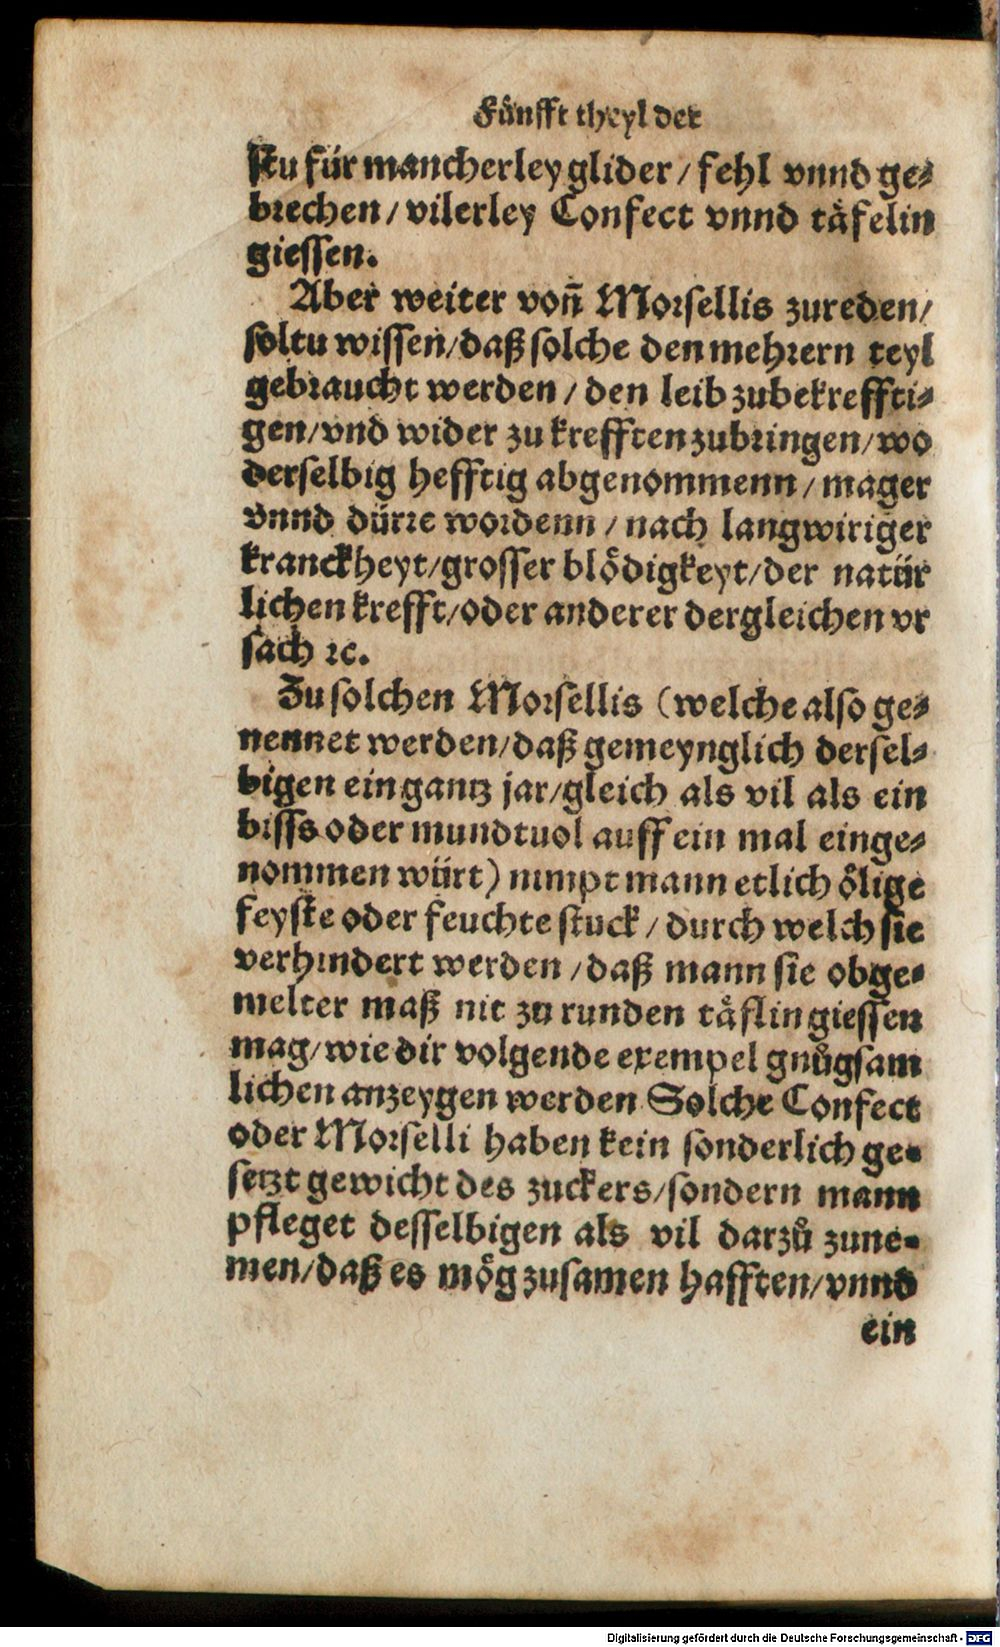 Fünfft theyl der
stu für mancherley glider / fehl vnnd ge⸗
brechen / vilerley Confect vnnd tåfelin
giessen.
Aber weiter von̄ Morsellis zureden /
soltu wissen / daß solche den mehrern teyl
gebraucht werden / den leib zubekreffti⸗
gen / vnd wider zu krefften zubringen / wo
derselbig hefftig abgenommenn / mager
vnnd dürre wordenn / nach langwiriger
kranckheyt / grosser blödigkeyt / der natür
lichen krefft / oder anderer dergleichen vr
sach ꝛc.
Zu solchen Morsellis (welche also ge⸗
nennet werden / daß gemeynglich dersel⸗
bigen ein gantz jar / gleich als vil als ein
bisss oder mundtuol auff ein mal einge⸗
nommen würt) nimpt mann etlich ölige
feyste oder feuchte stuck / durch welch sie
verhindert werden / daß mann sie obge⸗
melter maß nit zu runden tåflin giessen
mag / wie dir volgende exempel gnůgsam
lichen anzeygen werden Solche Confect
oder Morselli haben kein sonderlich ge⸗
setzt gewicht des zuckers / sondern mann
pfleget desselbigen als vil darzů zune⸗
men / daß es mög zusamen hafften / vnnd
ein
Digitalisierung gefördert durch die Deutsche Forschungsgemeinschaft - DFG